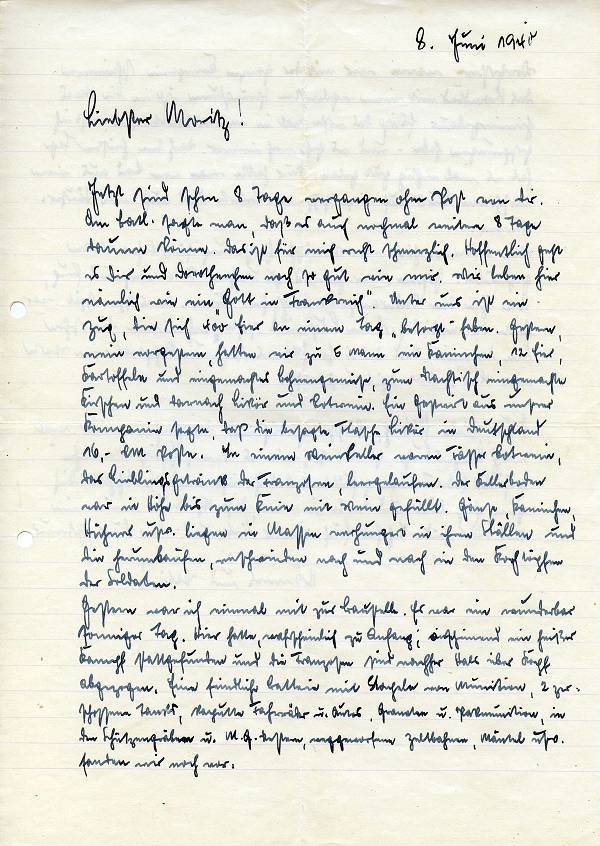 8. Juni 1940
Liebster Moritz!
Jetzt sind schon 8 Tage vergangen ohne Post von dir.
Am Batl. sagte man, daß es auch nochmal weitere 8 Tage
dauern könne. Das ist für mich recht schmerzlich. Hoffentlich geht
es Dir und Dorotheechen noch so gut wie mir. Wir leben hier
nämlich wie ein "Gott in Frankreich". Unter uns ist ein
Zug, die sich 400 Eier an einem Tag "besorgt" haben. Gestern,
nein vorgestern, hatten wir zu 5 Mann ein Kaninchen, 12 Eier,
Kartoffeln und eingemachtes Bohnengemüse, zum Nachtisch eingemachte
Kirschen und darnach Likör und Rotwein. Ein Gastwirt aus unsrer
Kompanie sagte, daß die besagte Flasche Likör in Deutschland
16,- RM koste. In einem Weinkeller waren Fässer Rotwein,
das Lieblingsgetränk der Franzosen, leergelaufen. Der Kellerboden
war in Höhe bis zum Knie mit Wein gefüllt. Gänse, Kaninchen,
Hühner usw. liegen in Massen verhungert in ihren Ställen und
die herumlaufen, verschwinden nach und nach in den Kochtöpfen
der Soldaten.
Gestern war ich einmal mit zur Baustelle. Es war ein wunderbar
sonniger Tag. Hier hatte, wahrscheinlich zu Anfang, anscheinend ein heißer
Kampf stattgefunden und die Franzosen sind nachher Hals über Kopf
abgezogen. Eine feindliche Batterie mit Stapeln von Munition, 2 zer-
schossene Tanks, kaputte Fahrräder u. Autos, Granaten u. Munition, in
den Schützengräben u. M.G. Nestern, weggeworfene Zeltbahnen, Mäntel usw.
fanden wir noch vor.